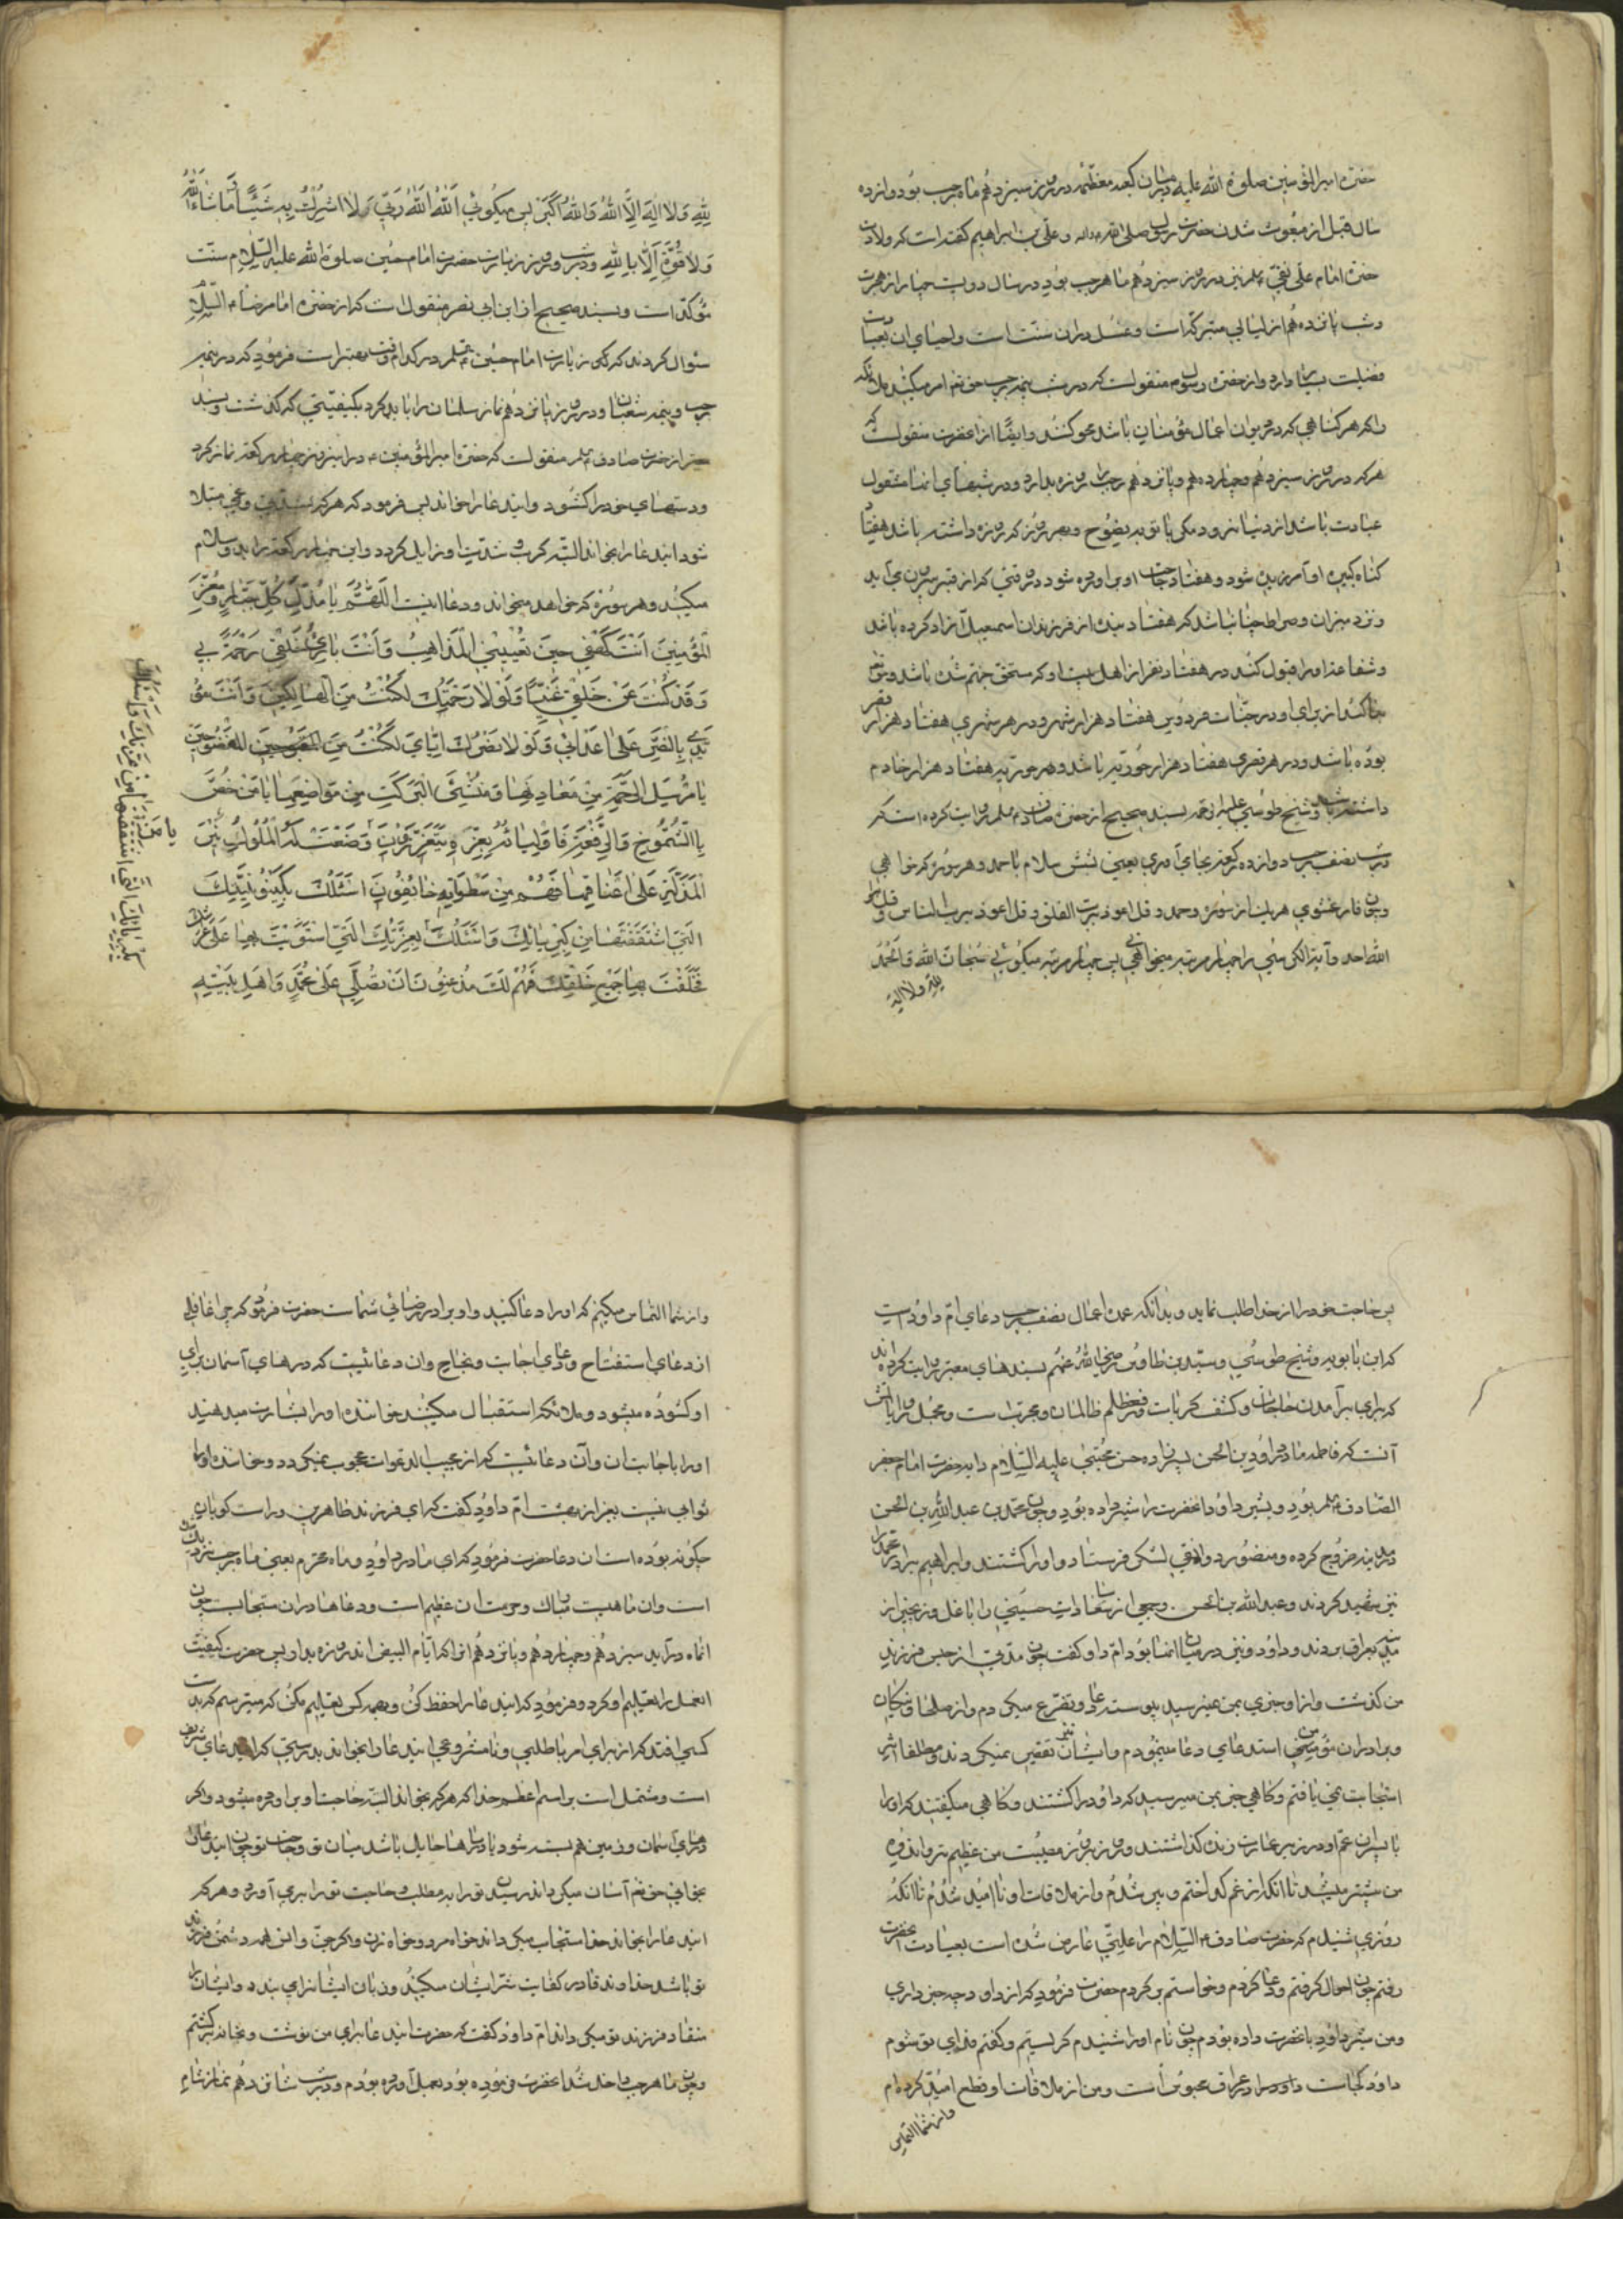 حضرة امیرالمؤمنین صلوة الله علیه در میان کعبه معظمه در روز سیزدهم ماه رجب بود دوازده
سال قبل از مبعوث شدن حضرت رسول صلی الله علیه واله و علی بن ابراهیم گفته است که ولادت
حضرة امام علی نقی نیز در روز سیزدهم ماه رجب بود در سال دویست چهار از هجرت
و شب پانزدهم از لیالی متبرکه است و غسل در آن سنت است و احیای آن بعبادت
فضیلت بسیار دارد و از حضرة رسول م منقولست که در شب نیمه رجب حق تع امر میکند ملائکه
را که هر کناهی که در دیوان اعمال مؤمنان باشد محو کنند وایضًا از انحضرت منقولست که
هرکه در روز سیزدهم و چهاردهم و پانزدهم رجب روزه بدارد و در شبهای اینها مشغول
عبادت باشد از دنیا نرود مکر با توبه نصوح و بهر روز که روزه داشته باشد هفتاد
کناه کبیره او آمرزیده شود و هفتاد حاجت او براورده شود در وقتی که از قبر بیرون می آید
و نزد میزان و صراط چنان باشد که هفتاد بنده از فرزندان اسمعیل آزاد کرده باشد
و شفاعة او را قبول کنند در هفتاد نفر از اهل بیت او که مستحق جهنم شده باشد و حق تع
بنا کند از برای او در جنات فردوس هفتاد هزار شهر و در هر شهری هفتاد هزار قصر
بوده باشد و در هر قصری هفتاد هزار حوریه باشد و هر حوریه هفتاد هزار خادم
داشته باشد و شیخ طوسی علیه الرحمه بسند صحیح از حضرة صادق م روایت کرده است که
در شب نصف رجب دوازده رکعة بجای آوری یعنی شش سلام با حمد و هر سوره که خواهی
و چون فارغ شوی هر یک از سوره حمد و قل اعوذ برب الفلق و قل اعوذ برب الناس و قل هو
الله احد و آیة الکرسی را چهار مرتبه میخوانی پس چهار مرتبه میکوئی سُبْحَانَ اللهِ وَالْحَمْدُ
للهِ ولا اله
لِلّٰهِ وَلا اِلٰهَ اِلَّا اللهُ وَاللهُ اَکْبَرُ پس میکوئی اَللهُ اَللهُ رَبّی وَلا اُشْرِکُ بِهِ شَیْئًا مَا شَاءَ اللهُ
وَلا قُوَّةَ اِلّا بِاللهِ و در شب و روز زیارت حضرت امام حسین صلوة الله علیه السلام سنت
مؤکد است و بسند صحیح از ابن ابی نصر منقول است که از حضرة امام رضا ء السلام
سئوال کردند که زیارت امام حسین در کدام وقت بهتر است فرمود که در نیمه
رجب و نیمه شعبان و در روز پانزدهم نماز سلمان را باید کرد بکیفیتی که کذشت و بسند
از حضرت صادق منقولست که حضرة امیرالمؤمنین ء در این روز چهار رکعة نماز کرد
و دستهای خود را کشود و اینه عا را خواند پس فرمود که هرکه بشدتی و غمی مبتلا
شود اینه عا را بخواند البته کرب و شدت او زایل کردد و این چهار رکعة را بدو سلام
میکند و هر سوره که خواهد میخواند و دعا اینست اَللّٰهُمَّ یا مُذِلَّ کُلِّ جَبَّارٍ وَ مُعِزَّ
الْمُؤْمِنینَ اَنْتَ کَهْفی حینَ تُعْیینی الْمَذاهِبُ وَ اَنْتَ بَارِئُ خَلْقی رَحْمَةً بی
وَ قَدْ کُنْتَ عَنْ خَلْقی غَنِیًّا وَ لَوْ لا رَحْمَتُکَ لَکُنْتُ مِنَ الْهالِکینَ وَ اَنْتَ مُؤَ
یِّدی بِالنَّصْرِ عَلی اَعْدائی وَ لَوْ لا نَصْرُکَ اِیّایَ لَکُنْتُ مِنَ الْمَفْضُوحینَ
یا مُرْسِلَ الرَّحْمَةِ مِنْ مَعادِنِها وَ مُنْشِئَ الْبَرَکَةِ مِنْ مَوَاضِعِها یا مَنْ خَصَّ
بِالشُّمُوخِ وَ الرِّفْعَةِ فَاَوْلِیائُهُ بِعِزِّهِ یَتَعَزَّزُونَ وَضَعَتْ لَهُ الْمُلُوکُ نیرَ
الْمَذَلَّةِ عَلی اَعْناقِهِمْ فَهُمْ مِنْ سَطَواتِهِ خائِفُونَ اَسْئَلُکَ بِکَیْنُونِیَّتِکَ
الَّتی اشْتَقَقْتَها مِنْ کِبْرِیائِکَ وَ اَسْئَلُکَ بِعِزَّتِکَ الَّتی اسْتَوَیْتَ بِها عَلی عَرْشِکَ
فَخَلَقْتَ بِها جَمیعَ خَلْقِکَ فَهُمْ لَکَ مُذْعِنُونَ اَنْ تُصَلِّیَ عَلی مُحَمَّدٍ وَ اَهْلِ بَیْتِهِ
پس حاجت خود را از خدا طلب نماید و بدانکه عمده اعمال نصف رجب دعای امّ داود است
که ابن بابویه و شیخ طوسی و سید بن طاوس رضی الله عنهم بسندهای معتبر روایت کرده اند
که برای برآمدن حاجات و کشف کربات و رفع ظلم ظالمان مجربست و مجمل روایاتش
آنست که فاطمه مادر داود بن الحسن پسرزاده حسن مجتبی علیه السلام دایه حضرت امام جعفر
الصادق بود و بشیر داود انحضرت را شیر داده بود و چون محمد بن عبد الله بن الحسن
در مدینه خروج کرده و منصور دوانقی لشکر فرستاد و او را کشتند و ابراهیم برادر محمد را
نیز شهید کردند و عبدالله بن الحسن و جمعی از سادات حسینی را با غل و زنجیر از
مدینه بعراق بردند و داود نیز در میان اینها بود امّ داود کفت چون مدتی از حبس فرزند
من کذشت و از او خبری بمن نمیرسید پیوسته دعا و تضرع میکردم و از صلحا و نیکان
و برادران مؤمن استدعای دعا مینمودم وایشان نیز تقصیر نمیکردند و مطلقا اثر
استجابت نمی یافتم و کاهی خبر بمن میرسید که داود را کشتند و کاهی میکفتند که او را
با پسران عمّ او در زیر عمارت زنده کذاشتند و روز بروز مصیبت من عظیم تر و اندوه
من بیشتر میشد تا انکه از غم کداختم و پیر شدم و از ملاقات او نا امید شدم تا انکه
روزی شنیدم که حضرت صادق ء السلام را علتی عارض شده است بعیادت انحضرت
رفتم چون احوال کرفتم و دعا کردم و خواستم برکردم حضرت فرمود که از داود چه خبر داری
و من بشیر داود انحضرت داده بودم چون نام او را شنیدم کریستم و کفتم فدای تو شوم
داود کجاست داود در عراق محبوس است و من از ملاقات او قطع امید کرده ام
و از شما التماس
و از شما التماس میکنم که او را دعا کنید و او برادر رضائی شماست حضرت فرمود که چرا غافلی
از دعای استفتاح و دعای اجابت و نجاح و ان دعائیست که درهای آسمان برای
او کشوده میشود و ملائکه استقبال میکنند خواننده او را بشارت میدهند
او را باجابت ان و آن دعائیست که از مجیب الدعوات محجوب نمیکردد و خواننده او را
ثوابی نیست بغیر از بهشت امّ داود کفت که ای فرزند طاهرین و راست کویان
چکونه بوده است ان دعا حضرت فرمود که ای مادر داود و ماه محترم یعنی ماه رجب نزدیک
است و ان ماهیست مبارک و حرمت ان عظیم است و دعاها در ان مستجابست چون
انماه درآید سیزدهم و چهاردهم و پانزدهم انرا که ایّام البیض اند روزه بدار پس حضرت کیفیت
انعمل را تعلیم او کرد و فرمود که اینه عا را حفظ کن و بهمه کس تعلیم مکن که میترسم که بدست
کسی افتد که از برای امر باطلی و نا مشروعی اینه عا را بخواند بدرستی که اینه عای شریف
است و مشتمل است بر اسم اعظم خدا که هرکه بخواند البته حاجت او براورده میشود و اکر
درهای آسمان و زمین هم بسته شود یا دریاها حایل باشد میان تو و حاجت تو چون اینه عا را
بخوانی حق تع آسان میکرداند رسیدن تو را بمطلب و حاجت تو را برمی آورد و هرکه
اینه عا را بخواند خدا مستجاب میکرداند خواه مرد و خواه زن و اکر جن و انس همه دشمن فرزند
تو باشد خداوند قادر کفایت شر ایشان میکند و زبان ایشانرا می بندد و ایشان را
منقاد فرزند تو میکرداند امّ داود کفت که حضرت اینه عا برای من نوشت و بخانه برکشتم
و چون ماه رجب داخل شد انحضرت فرموده بود بعمل آورده بودم و در شب شانزدهم نماز شام